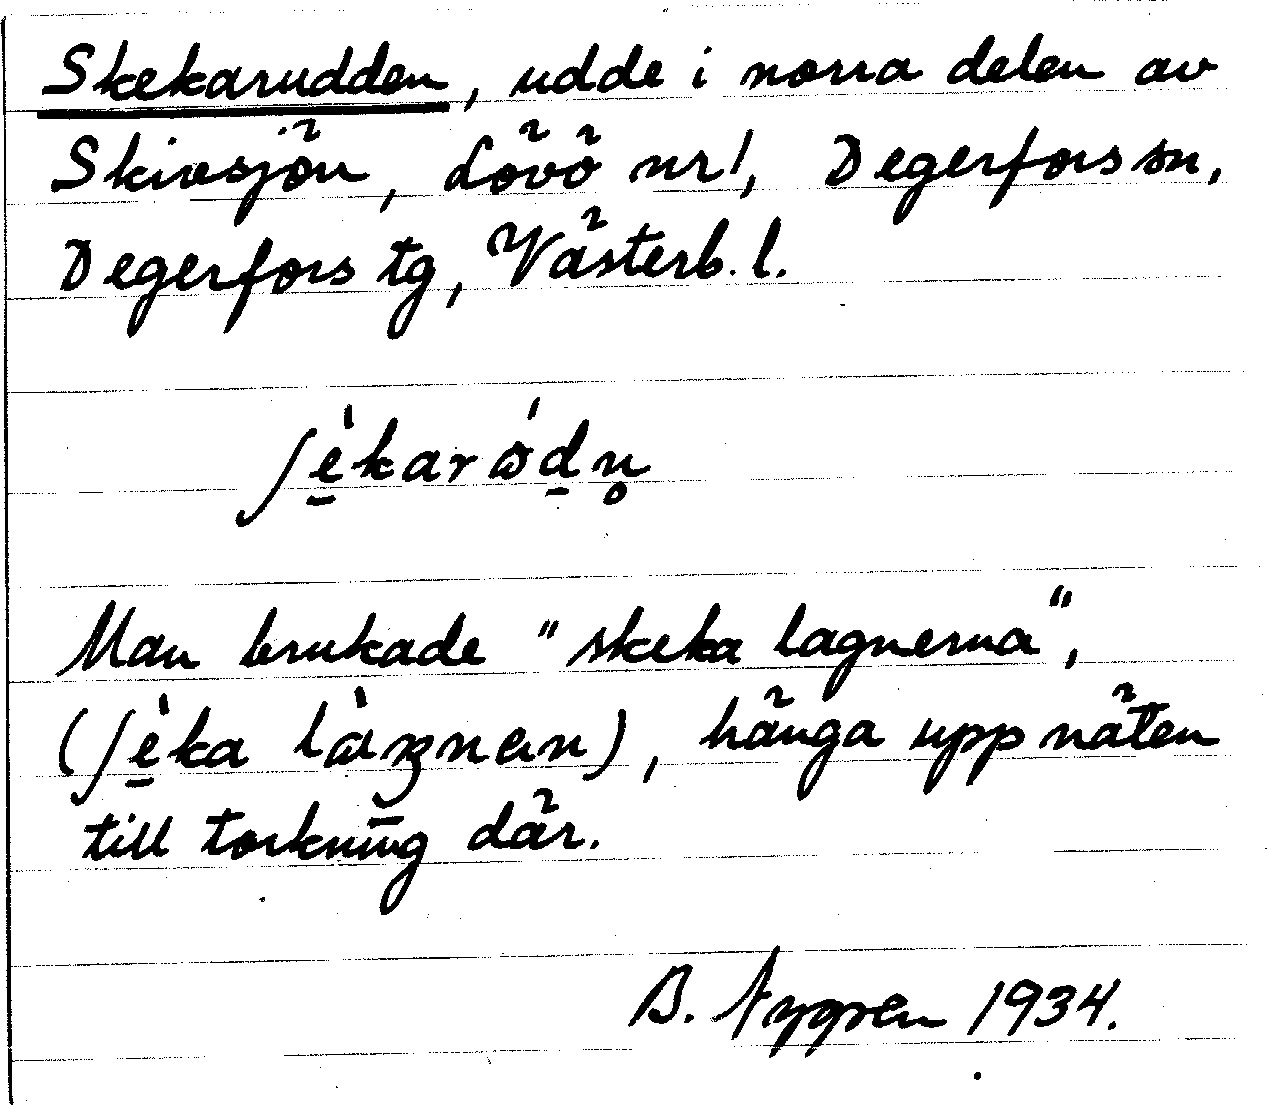 Skekarudden, udde i norra delen av
Skivsjön, Lövö nr 1, Degerfors sn,
Degerfors tg, Västerb. l.
ʃè̱karòḏn̥
Man brukade "skeka lagnerna",
(ʃè̱ka làgnan), hänga upp näten
till torkning där.
B. Nygren 1934.